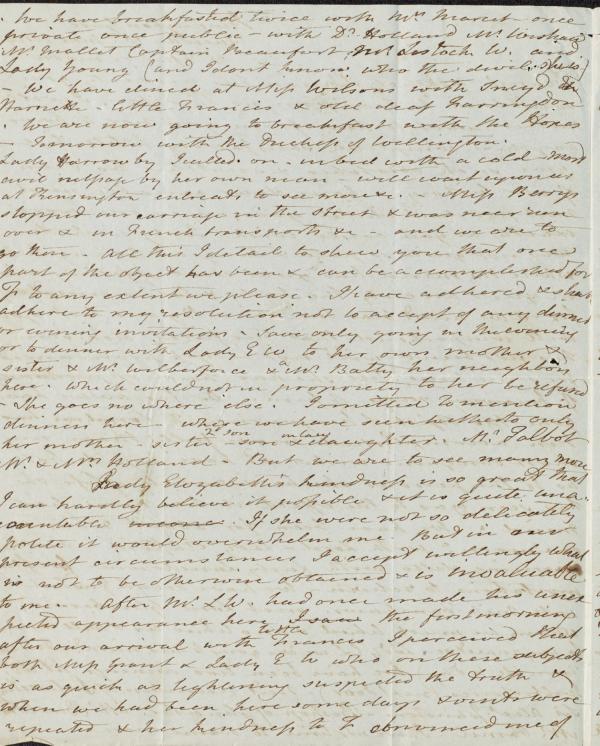 . We have breakfasted twice with Mrs Marcet once
private once public - with Dr Holland Mr Wishaw
Mr Mallet Captain Beaufort Mr Lestock W. and
Lady Young (and I dont know who the devil else)
- We have dined at Miss Wilsons with Sneyd
Harriette - little Francis & old deaf Farringdon
. We are now going to breakfast with the Hopes
- Tomorrow with the Duchess of Wellington.
Lady Harrowby I called on - in bed with a cold - most
civil message by her own man - will wait upon us
at Kensington entreats to see me &c - Miss Berrys
stopped our carriage in the street & was near run
over & in French transports &c - and we are to
go there - All this I detail to shew you that one
part of the object has been & can be accomplished for
F to any extent we please. I have adhered & shall
adhere to my resolution not to accept of any dinner
or evening invitations - Save only going in the evening
or to dinner with Lady E W to her own mother &
sister & Mr. Wilberforce & Mr. Batty her neighbors
here. which could not in propriety to her be refused
- She goes no where else. I omitted to mention
dinners here - where we have seen hitherto only
her mother - sister - son & daughter in law. Mr. Talbot
Mr. & Mrs Holland - But we are to see many more
Lady Elizabeth's kindness is so great that
I can hardly believe it possible & it is quite unac-
countable. If she were not so delicately
polite it would overwhelm me But in our
present circumstances I accept willingly what
is not to be otherwise obtained & is invaluable
to me. After Mr. L W. had once made his unex-
pected appearance here I saw the first morning
after our arrival with Francis I perceived that
both Miss Grant & Lady E W who on these subjects
is as quick as lightning suspected the truth &
when we had been here some days & visits were
repeated & her kindness to F convinced me of